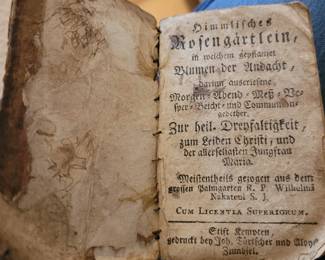 Himmlisches
Rosengärtlein,
in welchem gepflanzet
Blumen der Andacht,
darinn auserlesene
Morgen-Abend-Meß-Ve-
sper-Beicht-und Communion-
gebether.
Zur heil. Dreyfaltigkeit,
zum Leiden Christi, und
der allerseligsten Jungfrau
Maria.
Meistentheils gezogen aus dem
großen Palmgarten R. P. Wilhelmi
Nakateni S. J.
CUM LICENTIA SUPERIORUM.
Stift Kempten,
gedruckt bey Joh.                und Aloy